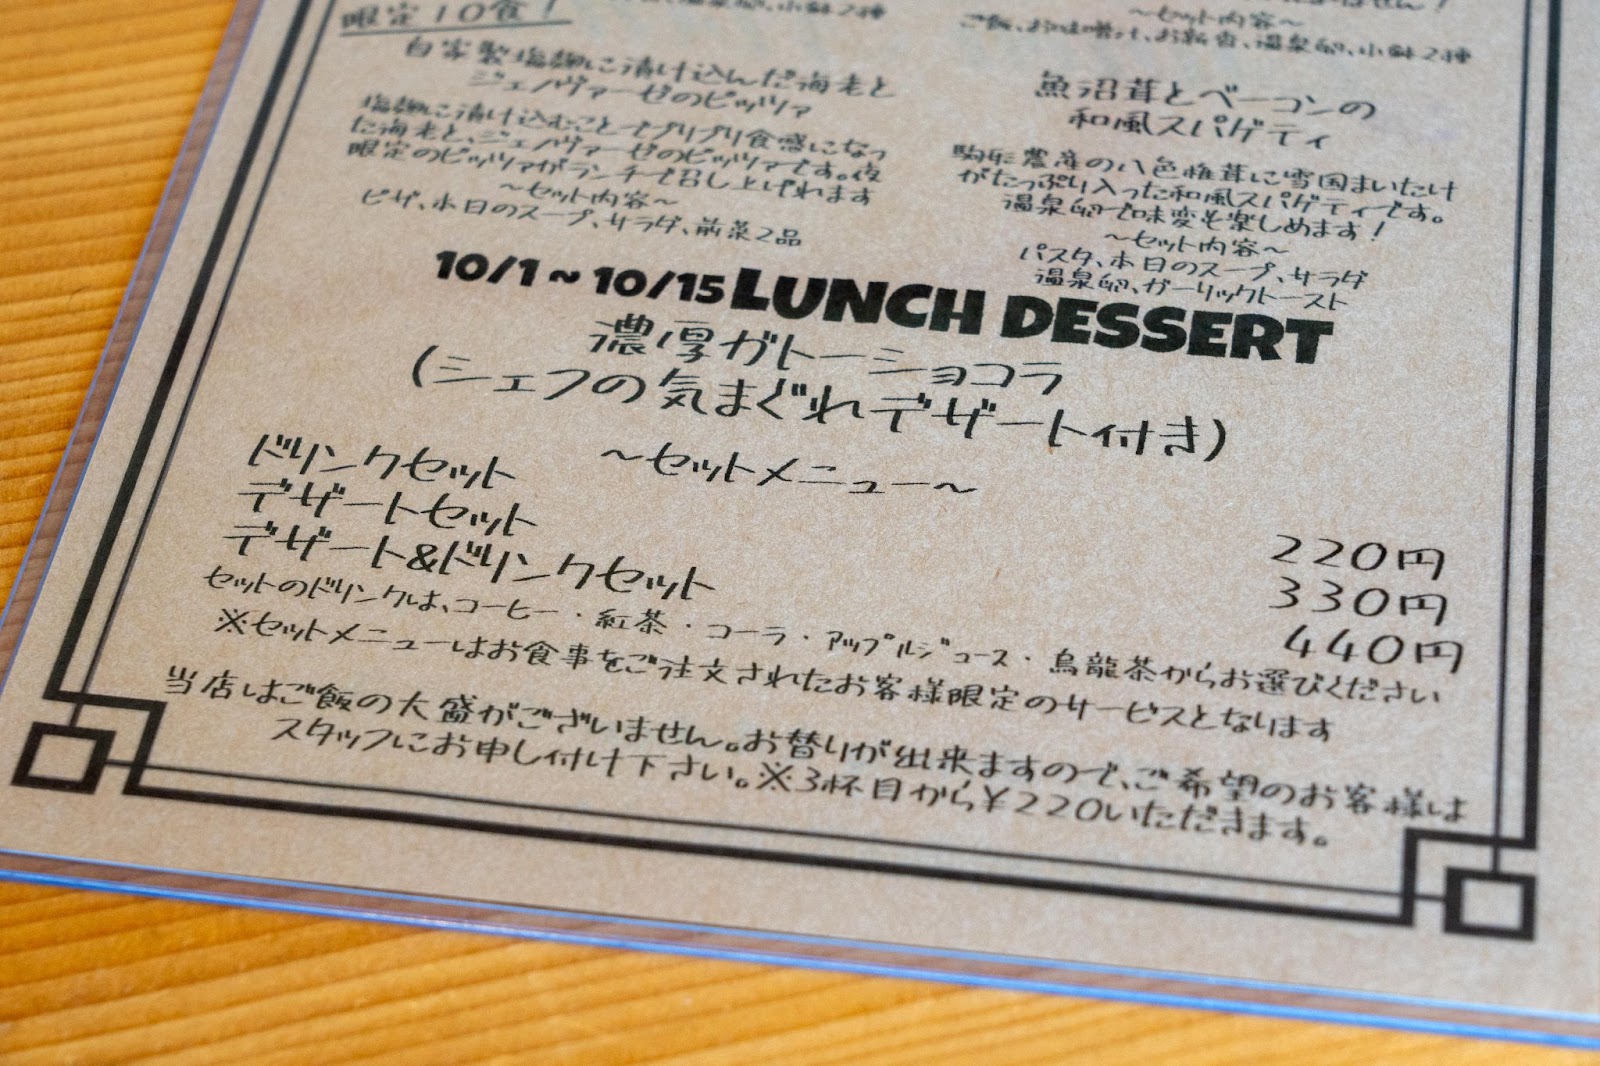 限定10食!
自家製塩麹に漬け込んだ海老と
ジェノヴァーゼのピッツァ
塩麹に漬け込むことでプリプリ食感になっ
た海老と、ジェノヴァーゼのピッツァです。夜
限定のピッツァがランチで召し上げれます
～セット内容～
ピザ、本日のスープ、サラダ、前菜2品
～セット内容～
ご飯、お味噌汁、お新香、温泉卵、小鉢2種
魚沼茸とベーコンの
和風スパゲティ
駒形農産の八色椎茸に雪国まいたけ
がたっぷり入った和風スパゲティです。
温泉卵で味変も楽しめます!
～セット内容～
パスタ、本日のスープ、サラダ
温泉卵、ガーリックトースト
10/1～10/15 LUNCH DESSERT
濃厚ガトーショコラ
(シェフの気まぐれデザート付き)
～セットメニュー～
ドリンクセット 220円
デザートセット 330円
デザート&ドリンクセット 440円
セットのドリンクは、コーヒー・紅茶・コーラ・アップルジュース・烏龍茶からお選びください
※セットメニューはお食事をご注文されたお客様限定のサービスとなります
当店はご飯の大盛がございません。お替りが出来ますので、ご希望のお客様は
スタッフにお申し付け下さい。※3杯目から¥220いただきます。